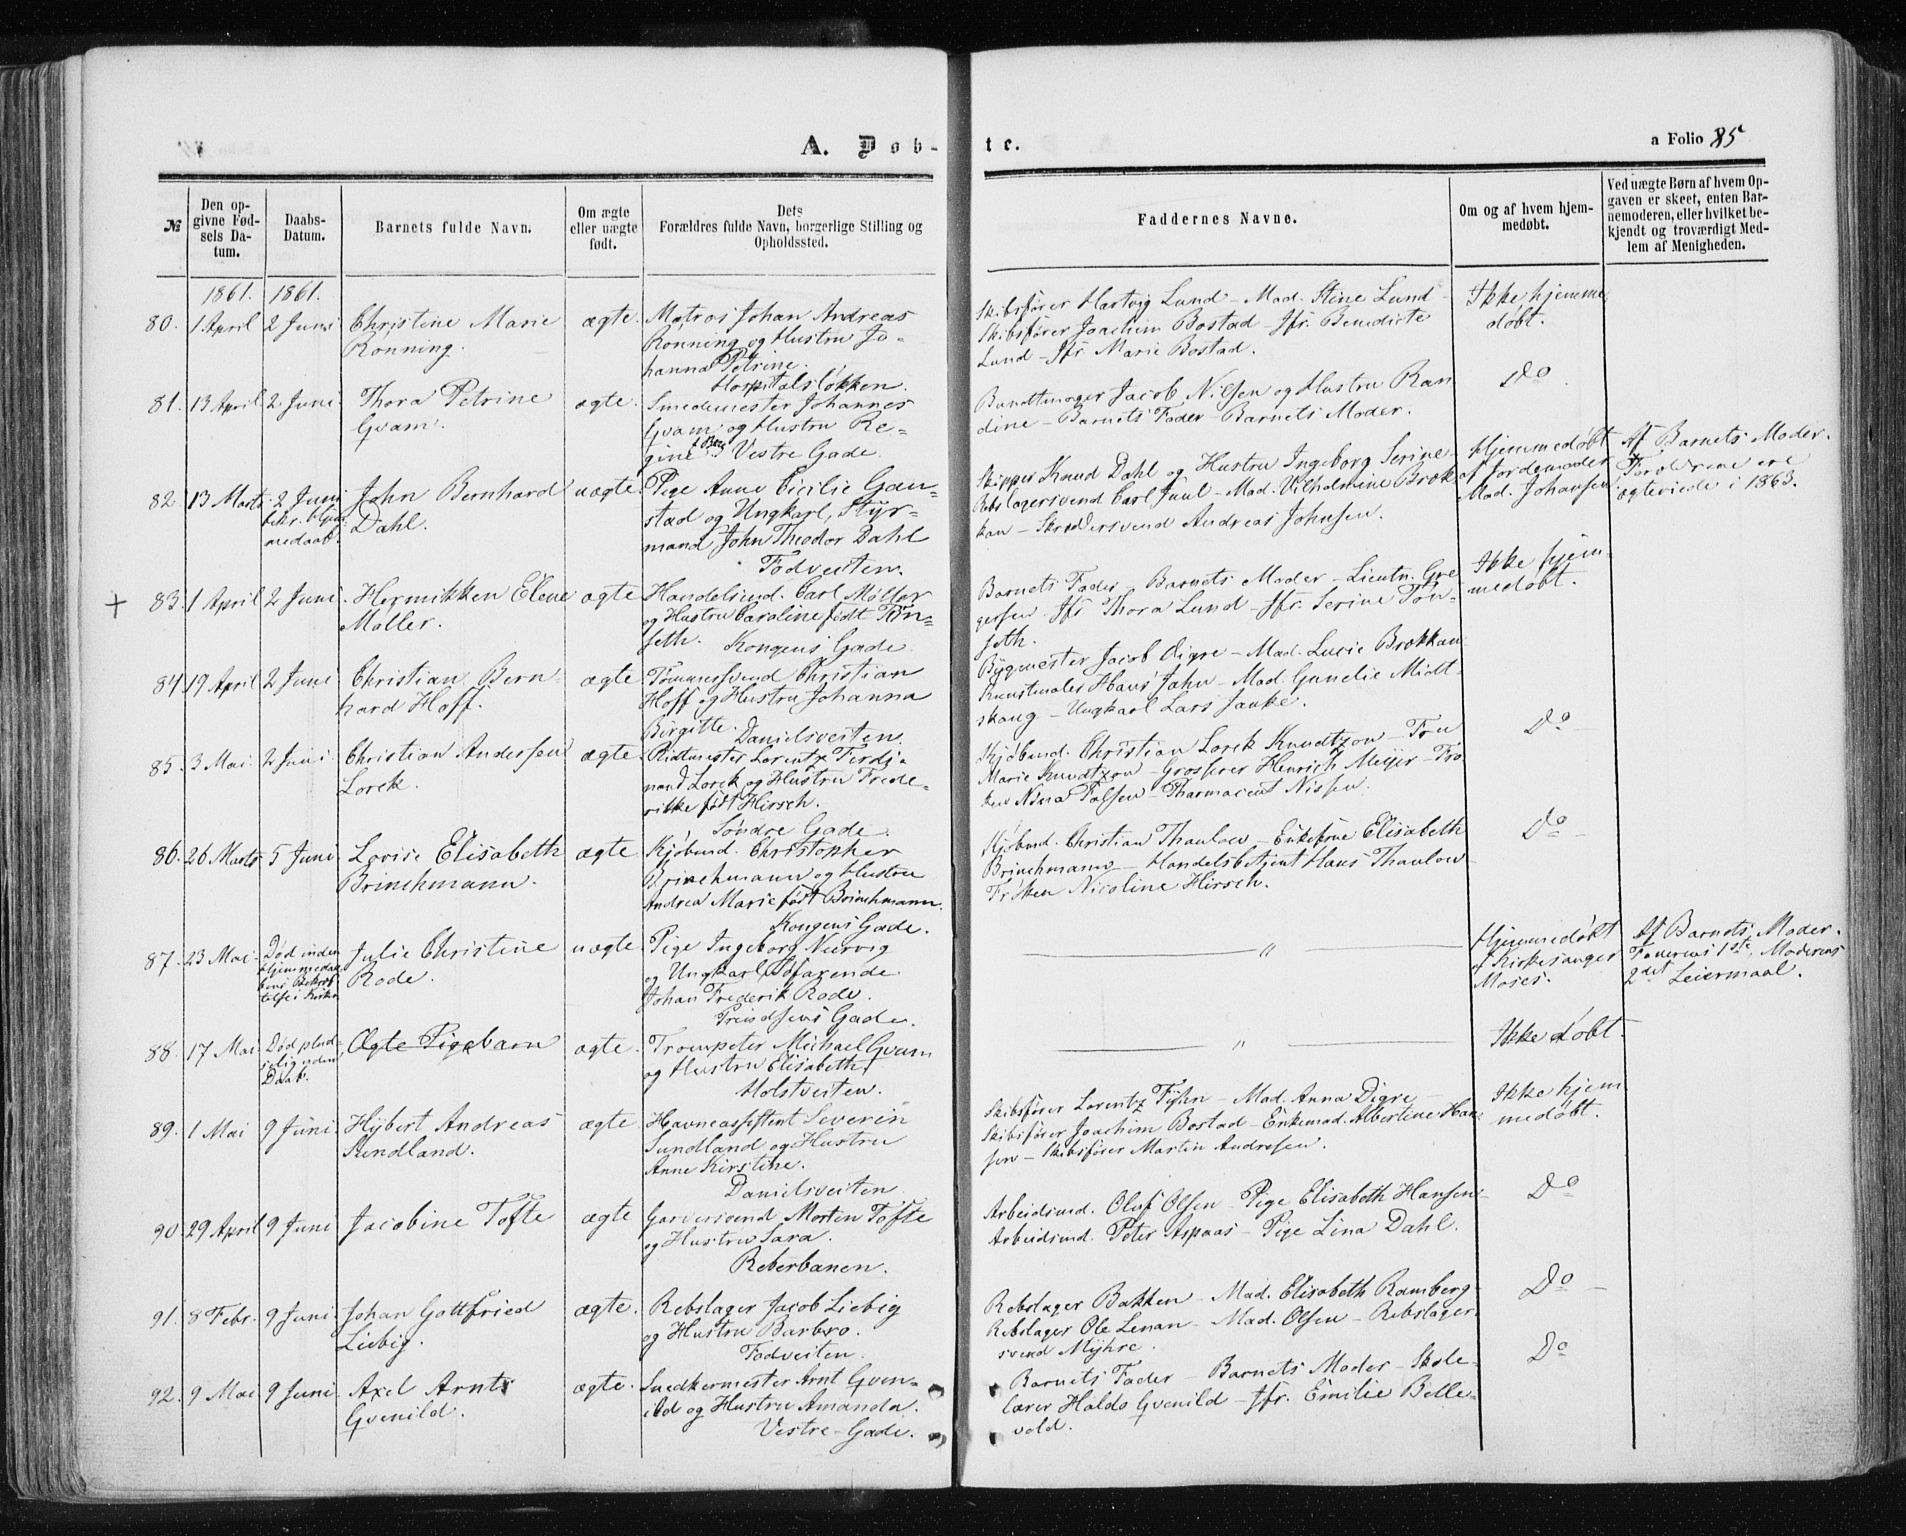 A. Døb-
te.
a Folio 85
№
Den op-
givne Fød-
sels Da-
tum.
Daabs-
Datum.
Barnets fulde Navn.
Om ægte
eller uægte
født.
Dets
Forældres fulde Navn, borgerlige Stilling og
Opholdssted.
Faddernes Navne.
Om og af hvem hjem-
medøbt.
Ved uægte Børn af hvem Op-
gaven er skeet, enten Bar-
nemoderen, eller hvilket be-
kjendt og troværdigt Med-
lem af Menigheden.
1861. 1861.
80. 1 April 2 Juni Christine Marie
Rønning.
ægte. Matros Johan Andreas
Rønning og Hustru Jo-
hanna Petrine.
Hospitalsløkken.
Skibsfører Hartvig Lund - Mad. Stine Lund
Skibsfører Joachim Bostad - Jfr. Benedicte
Lund - Jfr Marie Bostad.
Ikke hjemme
døbt.
81. 13 April 2 Juni Thora Petrine
Gvam.
ægte. Smedemester Johannes
Gvam og Hustru Re-
gine Vestre Gade.
Bundtmager Jacob Nilsen og Hustru Ran
dine - Barnets Fader - Barnets Moder.
Do
82. 13 Marts 2 Juni
bekr. hjem
medaab.
John Bernhard
Dahl.
uægte. Pige Anne Cicilie Gan-
stad og Ungkarl, Styr-
mand John Theodor Dahl
Fodveiten.
Skipper Knud Dahl og Hustru Ingeborg Serine-
Rebslagersvend Carl Juul - Mad. Vilhelmine Brok
kan - Skræddersvend Andreas Johnsen.
Hjemmedøbt
af Jordemoder
Mad. Johansen.
Af Barnets Moder.
Forældrene ere
ægteviede i 1863.
+ 83. 1 April 2 Juni Hermikken Elene
Møller.
ægte Handelsmd. Carl Møller
og Hustru Caroline født Tøn-
seth. Kongens Gade
Barnets Fader - Barnets Moder - Lieutn. Gre
gersen - Jfr Thora Lund - Jfr. Serine Tøn-
seth.
Ikke hjem-
medøbt.
84 19 April 2 Juni Christian Bern-
hard Hoff.
ægte Tømmersvend Christian
Hoff og Hustru Johanna
Birgitte. Danielsveiten
Bygmester Jacob Digre - Mad. Lucie Brokkan
Kunstmaler Hans Jahn - Mad. Gunelie Midt-
skaug - Ungkarl Lars Janke.
85. 3 Mai 2 Juni Christian Andersen
Lorck.
ægte. Ridtmester Lorentz Ferdi-
nand Lorck og Hustru Frede-
rikke født Hirsch.
Søndre Gade.
Kjøbmd. Christian Lorck Knudtzon - Fru
Marie Knudtzon - Grosserer Henrich Meyer - Frø
ken Nina Falsen - Pharmaceut Nissen.
Do
86. 26 Marts 5 Juni Lovise Elisabeth
Brinchmann.
ægte Kjøbmd. Christopher
Brinchmann og Hustru
Andrea Marie født Brinchmann.
Kongens Gade.
Kjøbmd. Christian Thaulow - Enkefrue Elisabeth
Brinchmann - Handelsbetjent Hans Thaulow
Frøken Nicoline Hirsch.
Do -
87. 23 Mai. Død inden
Hjemmedaa
bens Bekræf
telse i Kirken
Julie Christine
Rode.
uægte Pige Ingeborg Nervig
og Ungkarl, Søfarende
Johan Frederik Rode.
Gade.
"
Hjemmedøbt
af Kirkesanger
Moses.
Af Barnets Moder.
Faderens 1ste, Moderens
2det Leiermaal.
88. 17 Mai Død plud-
selig uden
Daab.
Ægte Pigebarn ægte. Trompeter Michael Gvam
og Hustru Elisabeth
Holstveiten.
"
Ikke døbt.
89. 1 Mai 9 Juni Hybert Andreas
Sundland.
ægte Havneassistent Severin
Sundland og Hustru
Anne Kirstine.
Danielsveiten
Skibsfører Lorentz Tyhn - Mad. Anna Digre -
Skibsfører Joachim Bostad - Enkemad. Albertine Han-
sen - Skibsfører Martin Andresen.
Ikke hjem
medøbt.
90. 29 April 9 Juni Jacobine Tofte ægte Garversvend Morten Tofte
og Hustru Sara.
Reberbanen.
Arbeidsmd. Oluf Olsen - Pige Elisabeth Hansen-
Arbeidsmd. Peter Aspaas - Pige Lina Dahl.
Do
91. 8 Febr. 9 Juni Johan Gottfried
Liebig.
ægte. Rebslager Jacob Liebig
og Hustru Barbro.
Fodveiten.
Rebslager Bakken - Mad. Elisabeth Ramberg-
Rebslager Ole Lenan - Mad. Olsen - Rebslager-
svend Myhre.
Do -
92. 9 Mai 9 Juni Axel Arnt
Gvenild.
ægte. Snedkermester Arnt Gven-
ild og Hustru Amanda.
Vestre-Gade.
Barnets Fader - Barnets Moder - Skole-
lærer Haldo Gvenild - Jfr. Emilie Belle-
vold.
Do